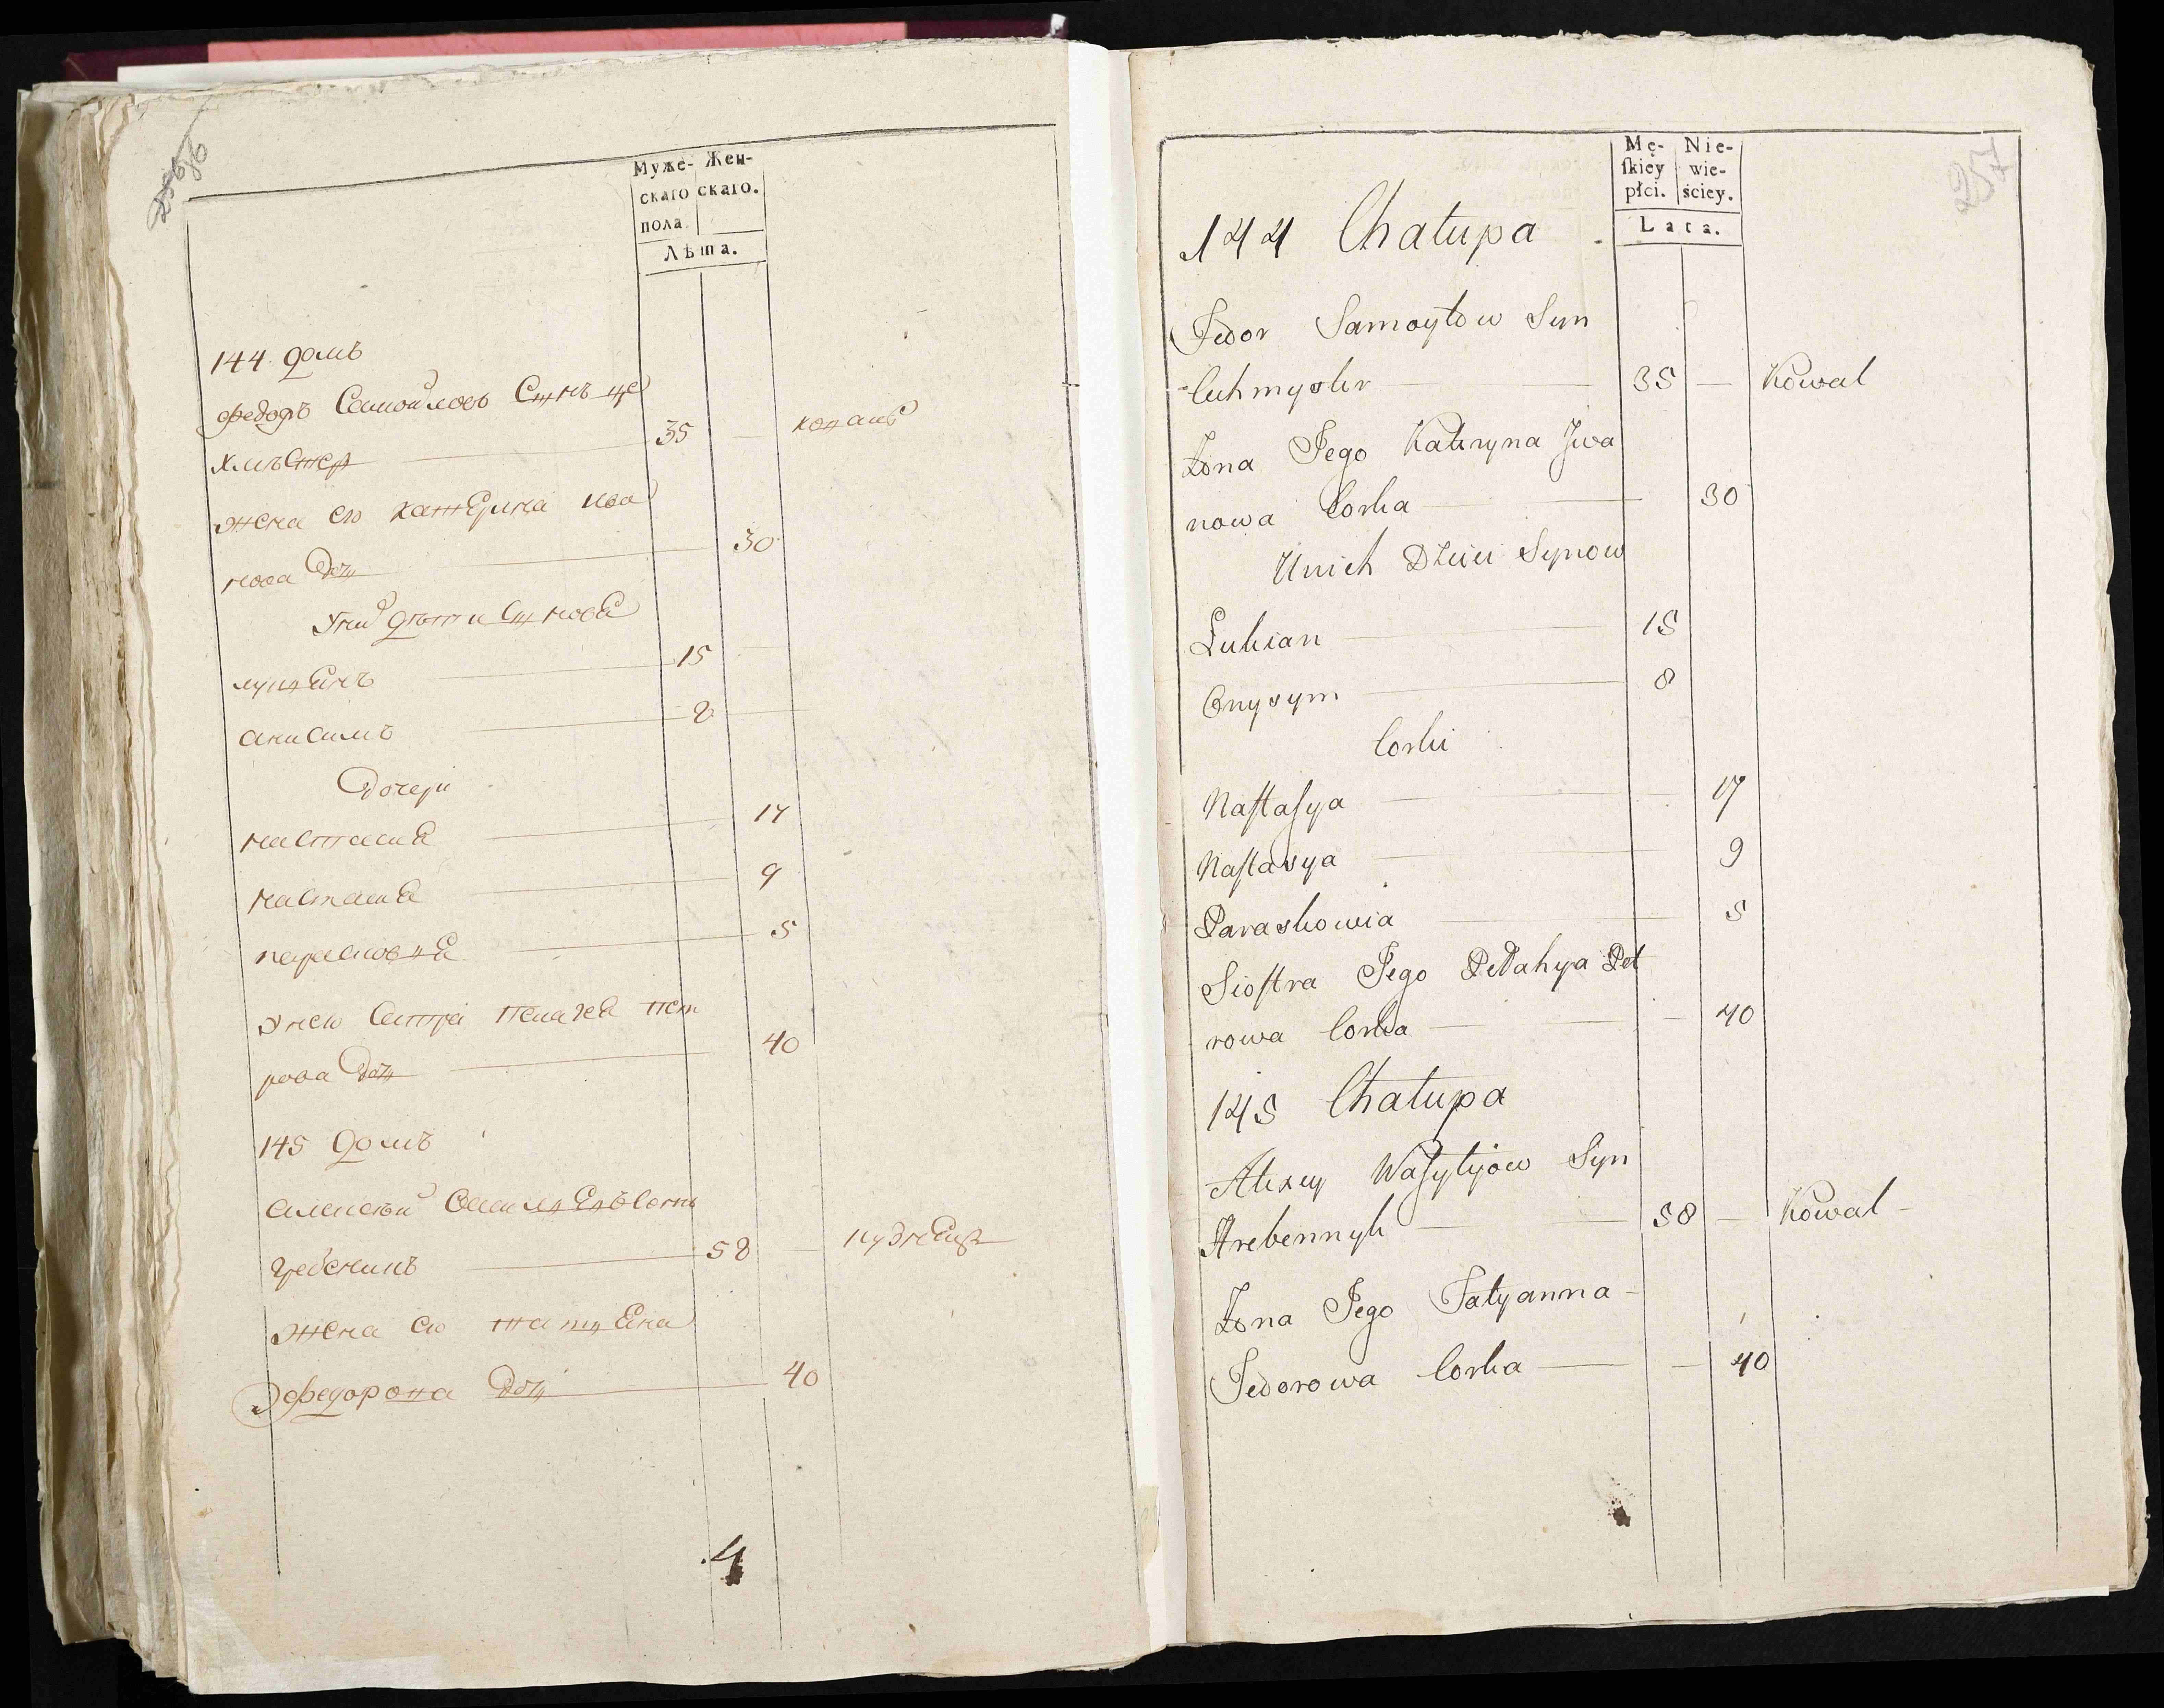 256об
Муже- Жен-
скаго скаго.
пола
Лѣта.
144 домъ
федоръ Самойловъ Сынъ це
хмѣстер 35 — коваль
жена ево катерина ива
нова доч 30
У них дѣти Сыновя
луциянъ 15
анисимъ 8
дочери
настасия 17
настасия 9
парасковия 5
У нево Сестра пелагея пет
рова доч 40
145 домъ
алексѣй Василиевъ Сынъ
гребеникъ 58 — кузнецъ
жена ево татияна
федорова доч 40
4
257
Mę- Nie-
ſkiey wie-
płci. ściey.
Lata.
144 Chałupa
Fedor Samoyłow Syn
Cechmystr 35 — Kowal
Zona Jego Kateryna Jwa
nowa Corka 30
Unich Dzieci Synow
Łukian 15
Onysym 8
Corki
Naſtaſya 17
Naſtasya 9
Paraskowia 5
Sioſtra Jego Pełahya Pet
rowa Corka — 40
145 Chałupa
Alexey Waſylijow Syn
Hrebennyk 58 — Kowal
Zona Jego Tatyanna
Fedorowa Corka — 40